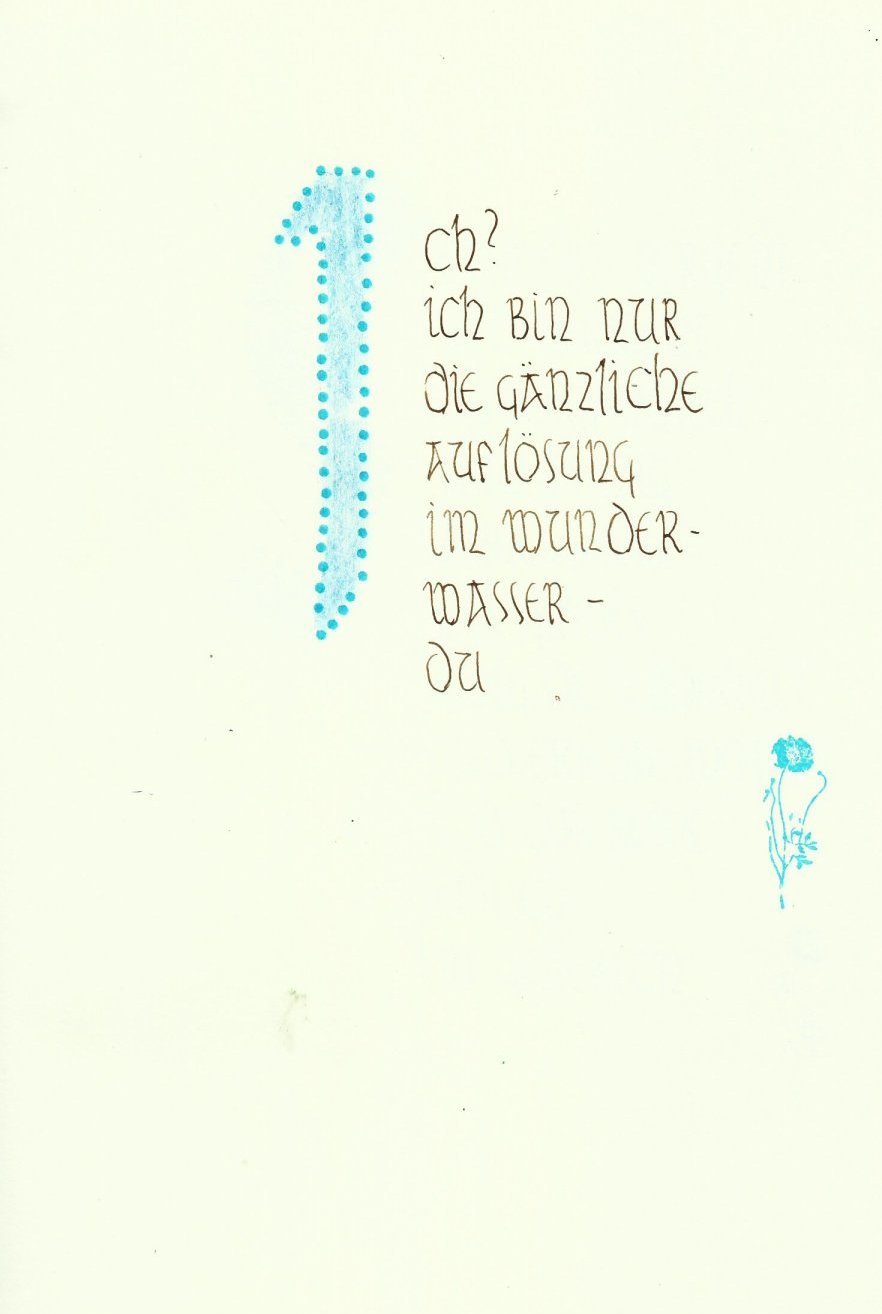 Ich?
ich bin nur
die gänzliche
auflösung
im wunder-
wasser -
du